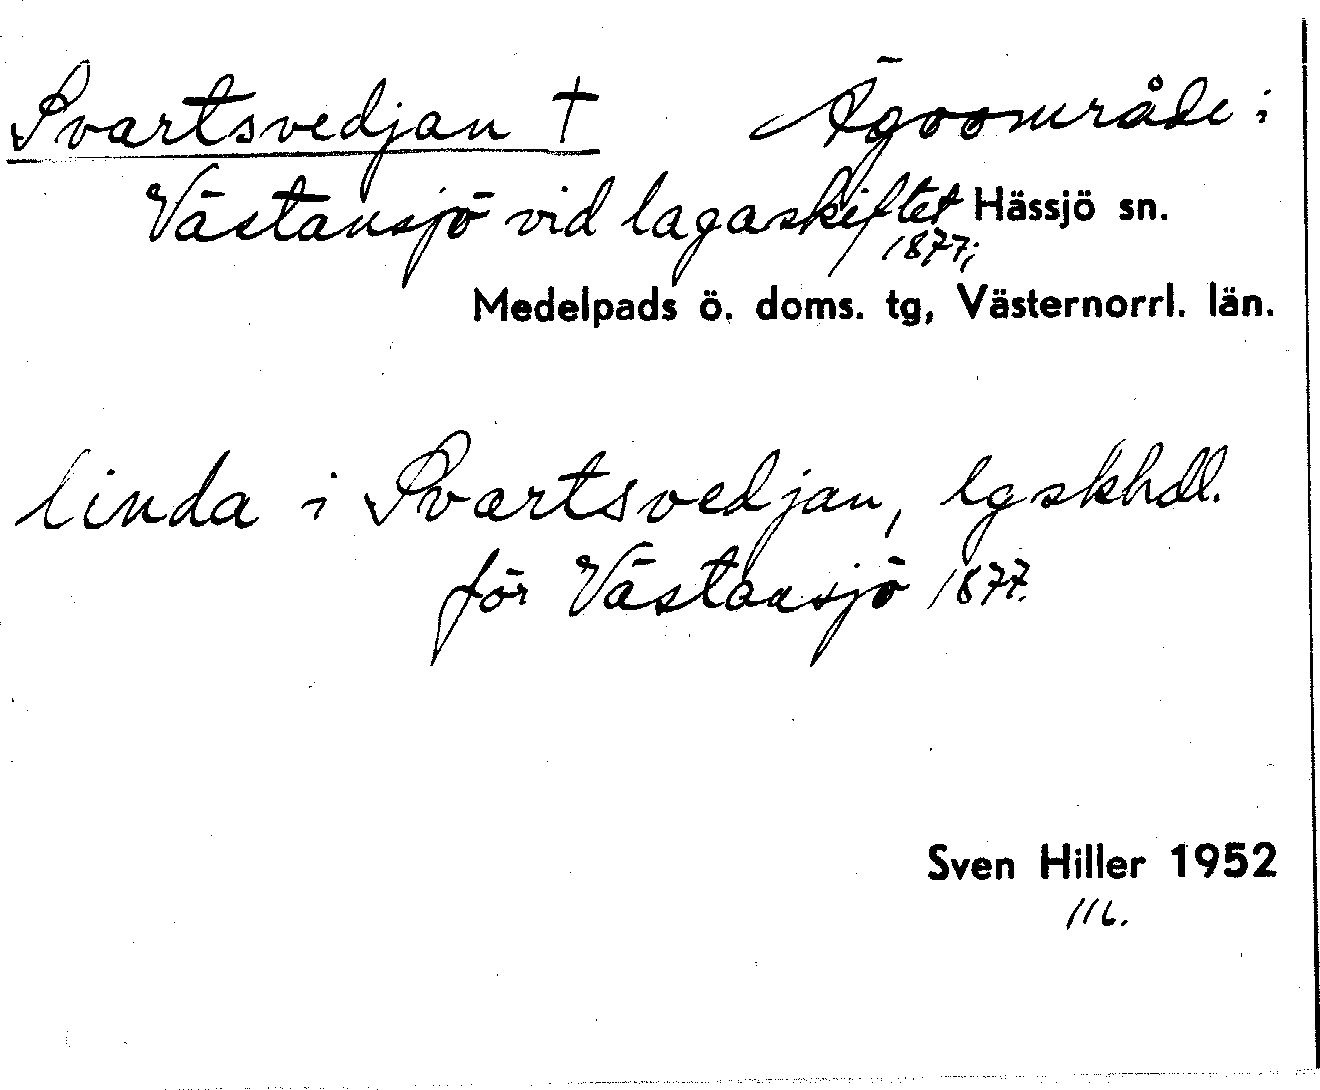 Svartsvedjan † Ägoområde i
Västansjö vid lagaskiftet Hässjö sn.
1877;
Medelpads ö. doms. tg, Västernorrl. län.
linda i Svartsvedjan, lgskhdl.
för Västansjö 1877.
Sven Hiller 1952